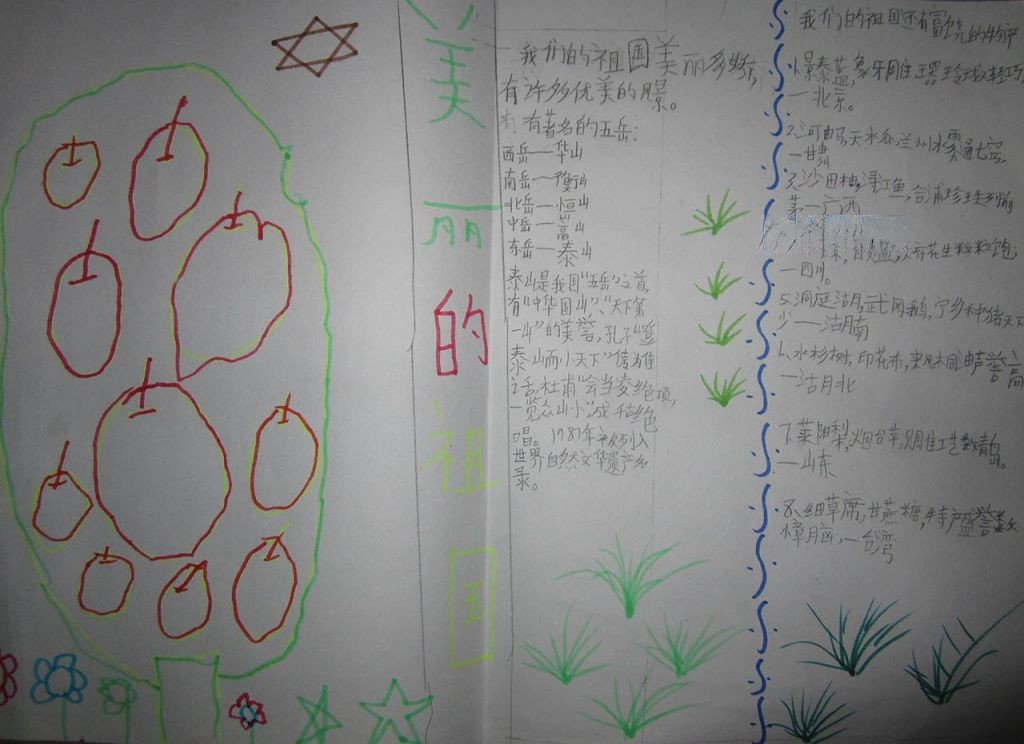 美丽的祖国
我们的祖国美丽多娇，
有许多优美的风景。
有著名的五岳：
西岳—华山
南岳—衡山
北岳—恒山
中岳—嵩山
东岳—泰山
泰山是我国“五岳”之首，
有“中华国山”、“天下第
一山”的美誉，孔子“登
泰山而小天下”传为佳
话，杜甫“会当凌绝顶，
一览众山小”成千古绝
唱。1987年被列入
世界自然文华遗产名
录。
我们的祖国还有富饶的物产
1.景泰蓝，象牙雕
—北京。
天水瓜，兰州水
—甘肃
3.沙田柚，鱼，合浦珍珠
—广西
花生粒粒饱；
—四川。
5.洞庭湖，武冈鹅，宁乡种猪天下
少——沽南
6.水杉树，印花布，声誉高
—沽月北
7.莱阳梨，烟台苹，工艺数青岛。
—山东
8.细草席，甘蔗糖，特产盛誉数
樟脑，—台湾